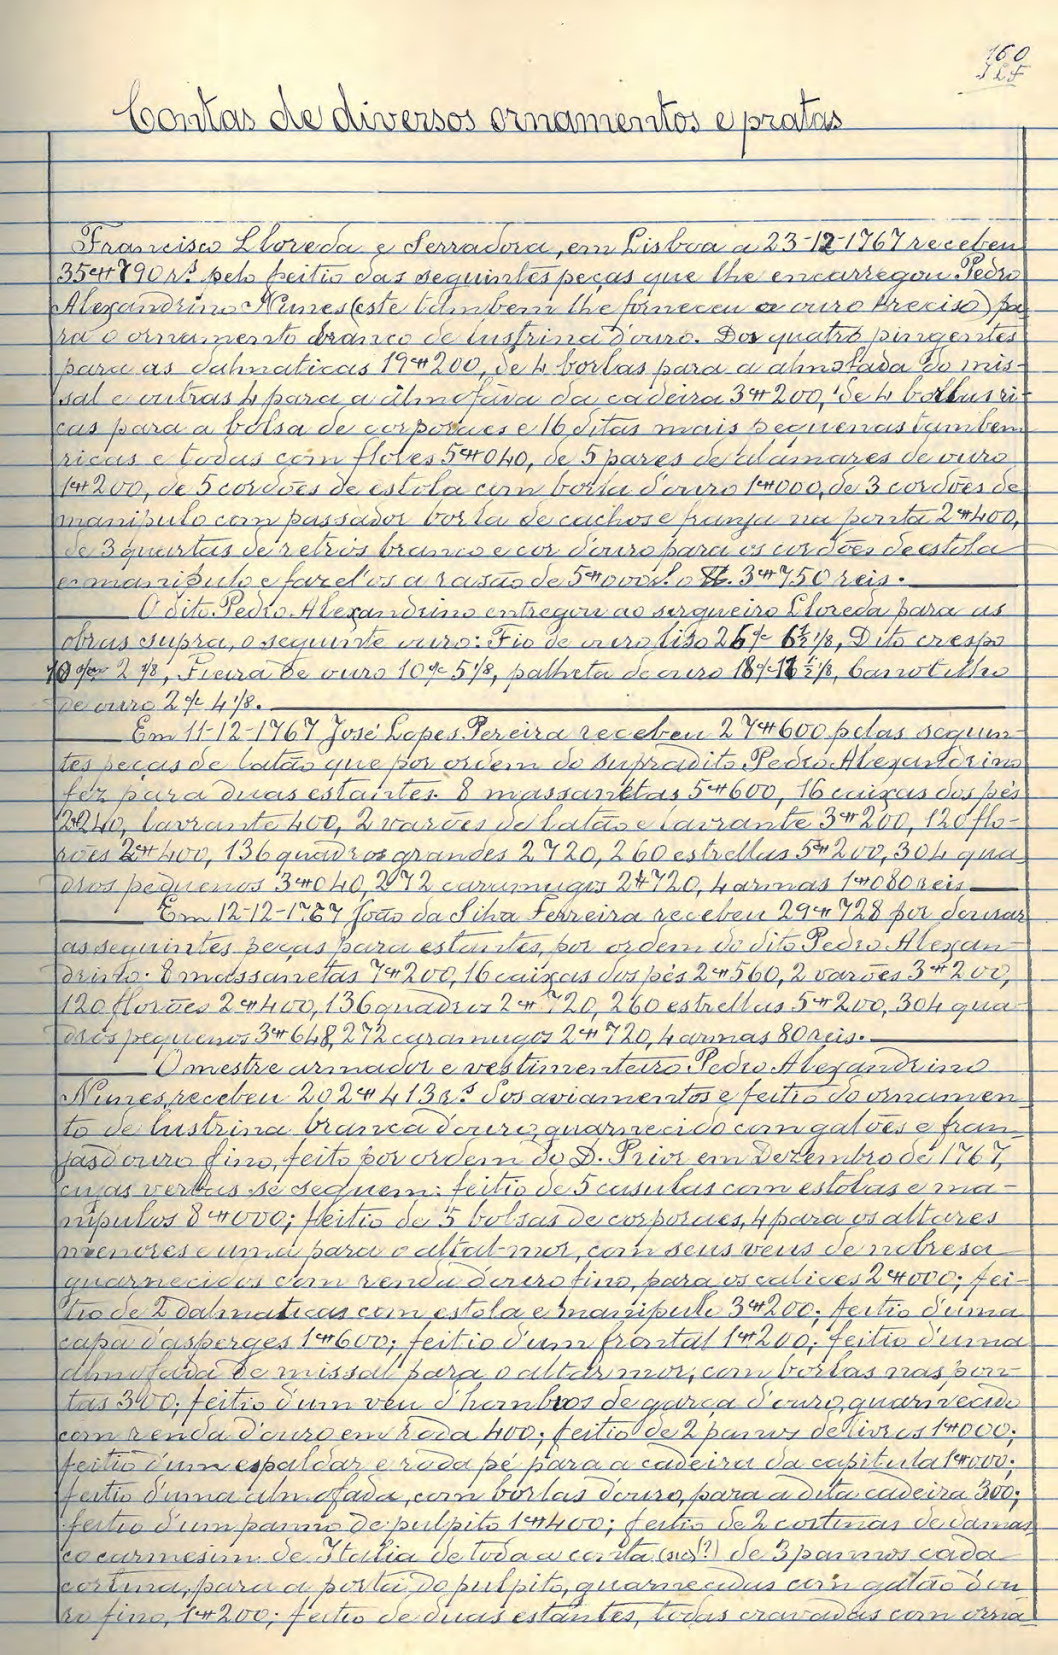 160
Contas de diversos ornamentos e pratas
Francisco Lloreda e Serradora, em Lisboa a 23-12-1767 recebeu
35#790 r.s pelo feitio das seguintes peças que lhe encarregou Pedro
Alexandrino Nunes (este tambem lhe forneceu o ouro preciso) pa
ra o ornamento branco de lustrina d'ouro. Dos quatro pingentes
para as dalmaticas 19#200, de 4 borlas para a almofada do mis-
sal e outras 4 para a almofada da cadeira 3#200, de 4 borlas ri-
cas para a bolsa de corporaes e 16 ditas mais pequenas tambem
ricas e todas com flores 5#040, de 5 pares de alamares de ouro
1#200, de 5 cordões de estola com borla d'ouro 1#000, de 3 cordões de
manipulo com passador borla de cachos e franja na ponta 2#400,
de 3 quartas de retrós branco e cor d'ouro para os cordões de estola
e manipulo e fazel'os a rasão de 5#000 o 3#750 reis.
O dito Pedro Alexandrino entregou ao sirgueiro Lloreda para as
obras supra, o seguinte ouro: Fio de ouro lizo 26 6½ 1/8, Dito crespo
10 2 1/8, Fieira de ouro 10 5 1/8, palheta de ouro 18 ½ 1/8, Canotilho
de ouro 2 4 1/8.
Em 11-12-1767 José Lopes Pereira recebeu 27#600 pelas seguin-
tes peças de latão que por ordem do supradito Pedro Alexandrino
fez para duas estantes. 8 massanetas 5#600, 16 caixas dos pés
2240, lavrante 400, 2 varões de latão e lavrante 3#200, 120 flo-
rões 2#400, 136 quadros grandes 2720, 260 estrellas 5#200, 304 qua
dros pequenos 3#040, 272 caramugos 2#720, 4 armas 1#080 reis
Em 12-12-1767 João da Silva Ferreira recebeu 29#728 por dourar
as seguintes peças para estantes, por ordem do dito Pedro Alexan-
drino: 8 massanetas 7#200, 16 caixas dos pés 2#560, 2 varões 3#200,
120 florões 2#400, 136 quadros 2#720, 260 estrellas 5#200, 304 qua-
dros pequenos 3#648, 272 caramugos 2#720, 4 armas 80 reis.
O mestre armador e vestimenteiro Pedro Alexandrino
Nunes, recebeu 202#413 r.s dos aviamentos e feitio do ornamen-
to de lustrina branca d'ouro, guarnecido com galões e fran-
jas d'ouro fino, feito por ordem do D. Prior em Dezembro de 1767,
cujas verbas se seguem: feitio de 5 casulas com estolas e ma-
nipulos 8#000; feitio de 5 bolsas de corporaes, 4 para os altares
menores e uma para o altar-mor, com seus veus de nobresa
guarnecidos com renda d'ouro fino, para os calices 2#000; fei-
tio de 2 dalmaticas com estola e manipulo 3#200; feitio d'uma
capa d'asperges 1#600; feitio d'um frontal 1#200; feitio d'uma
almofada de missal para o altar mor, com borlas nas pon-
tas 300; feitio d'um veu d'hombros de garça d'ouro, guarnecido
com renda d'ouro em roda 400; feitio de 2 panos de livros 1#000;
feitio d'um espaldar e roda pé para a cadeira da capitula 1#000;
feitio d'uma almofada, com borlas d'ouro, para a dita cadeira 300;
feitio d'um panno de pulpito 1#400; feitio de 2 cortinas de damas
co carmesim de Italia de toda a conta (sic?) de 3 pannos cada
cortina, para a porta do pulpito, guarnecidas com galão d'ou
ro fino, 1#200; feitio de duas estantes, todas cravadas com orna